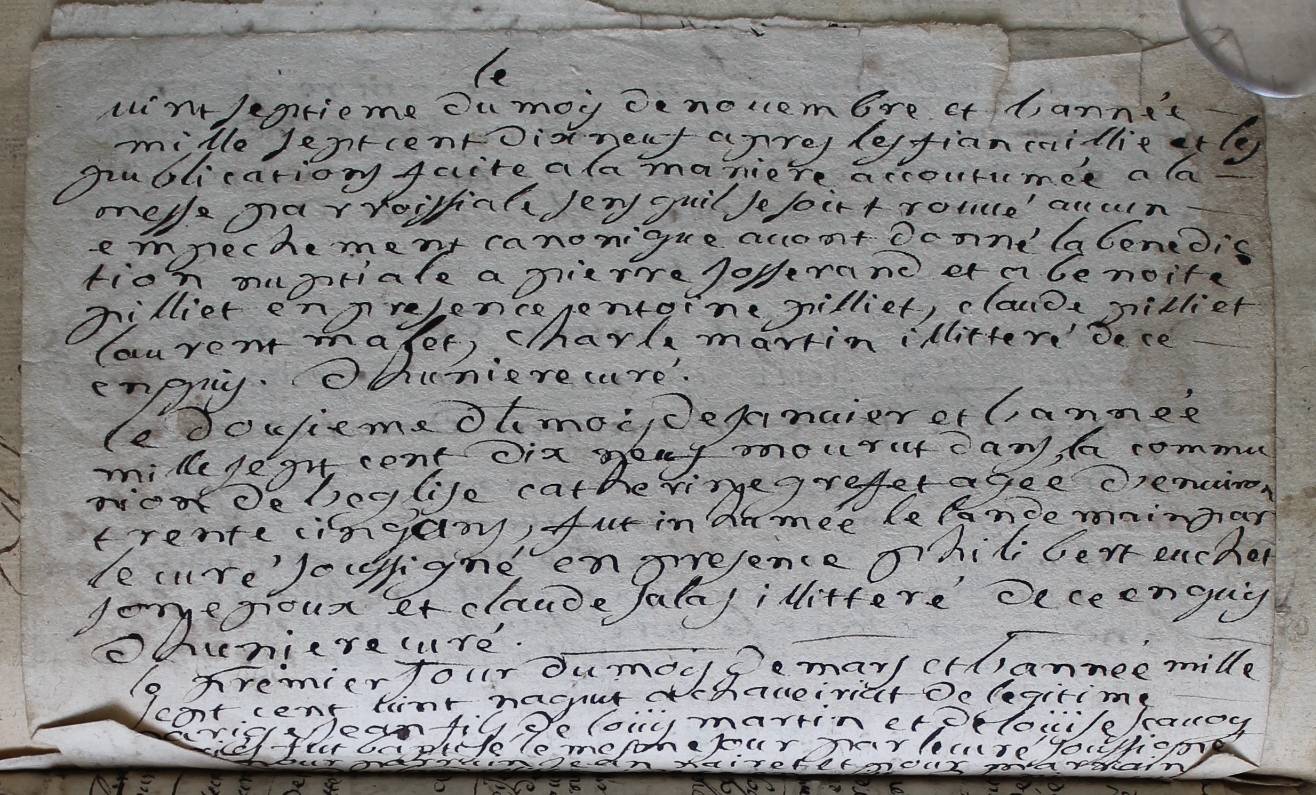 le
uint septieme du mois de nouembre et l'année
mille sept cent dix neuf apres les fiancaillie et les
publications faite a la maniere accoutumée a la
messe parroissiale sens quil se soit trouué aucun
empechement canonique auont donné la benedic
tion nuptiale a pierre Josserand et a benoite
pilliet en presence entoine pilliet, claude pilliet
laurent malet, charle martin illitteré de ce
enquis. Dhuniere curé.
le dousieme du mois de Januier et l'année
mille sept cent dix neuf mourut dans la commu
nion de l'eglise catherine greffet agee d'enuiron
trente cinq ans, fut inhumée le landemain par
le curé soussigné en presence philibert euchet
son epoux et claude salas illitteré de ce enquis
Dhuniere curé.
le premier Jour du mois de mars et l'année mille
sept cent uint naquit a chaueiriat de legitime
mariage Jean fils de loüis martin et de loüise sauoy
fut baptise le mesme Jour par le curé soussigné
pour parrain Jean et pour marrain